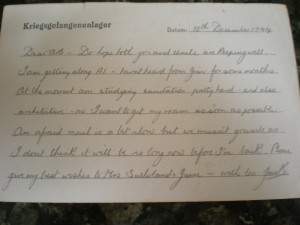 Kriegsgefangenenlager Datum: 10th December 1944
Dear – Do hope both you and uncle are keeping well.
I am getting along A1 – haven't heard from you for some months
At the moment am studying sanitation pretty hard and also
architecture – as I want to get my exam as soon as possible.
Am afraid mail is a bit slow but we mustn't grumble as
I don't think it will be so long now before I'm back. Please
give my best wishes to Mrs Sutherland & – with love